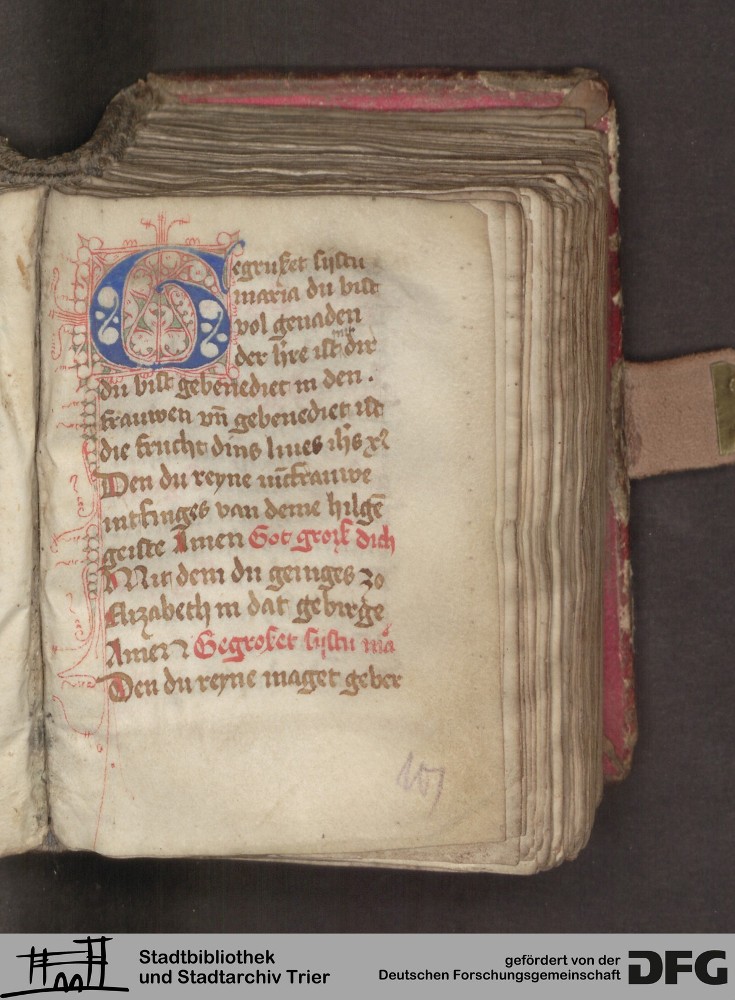 Gegruſet ſijſtu
maria du biſt
vol genaden
der h̄re iſt mit dir
du biſt gebenediet in den .
frauwen vn̄ gebenediet iſt
die frucht dins liues ih̄s xp̄s
Den du reyne iūcfrauwe
intfinges van deme hilgē
geiſte Amen Got groiſ dich
Mit dem du geinges zo
Elizabeth in dat gebirge
Amen Gegroſet ſijſtu mā
Den du reyne maget geber
101
Stadtbibliothek
und Stadtarchiv Trier
gefördert von der
Deutschen Forschungsgemeinschaft
DFG